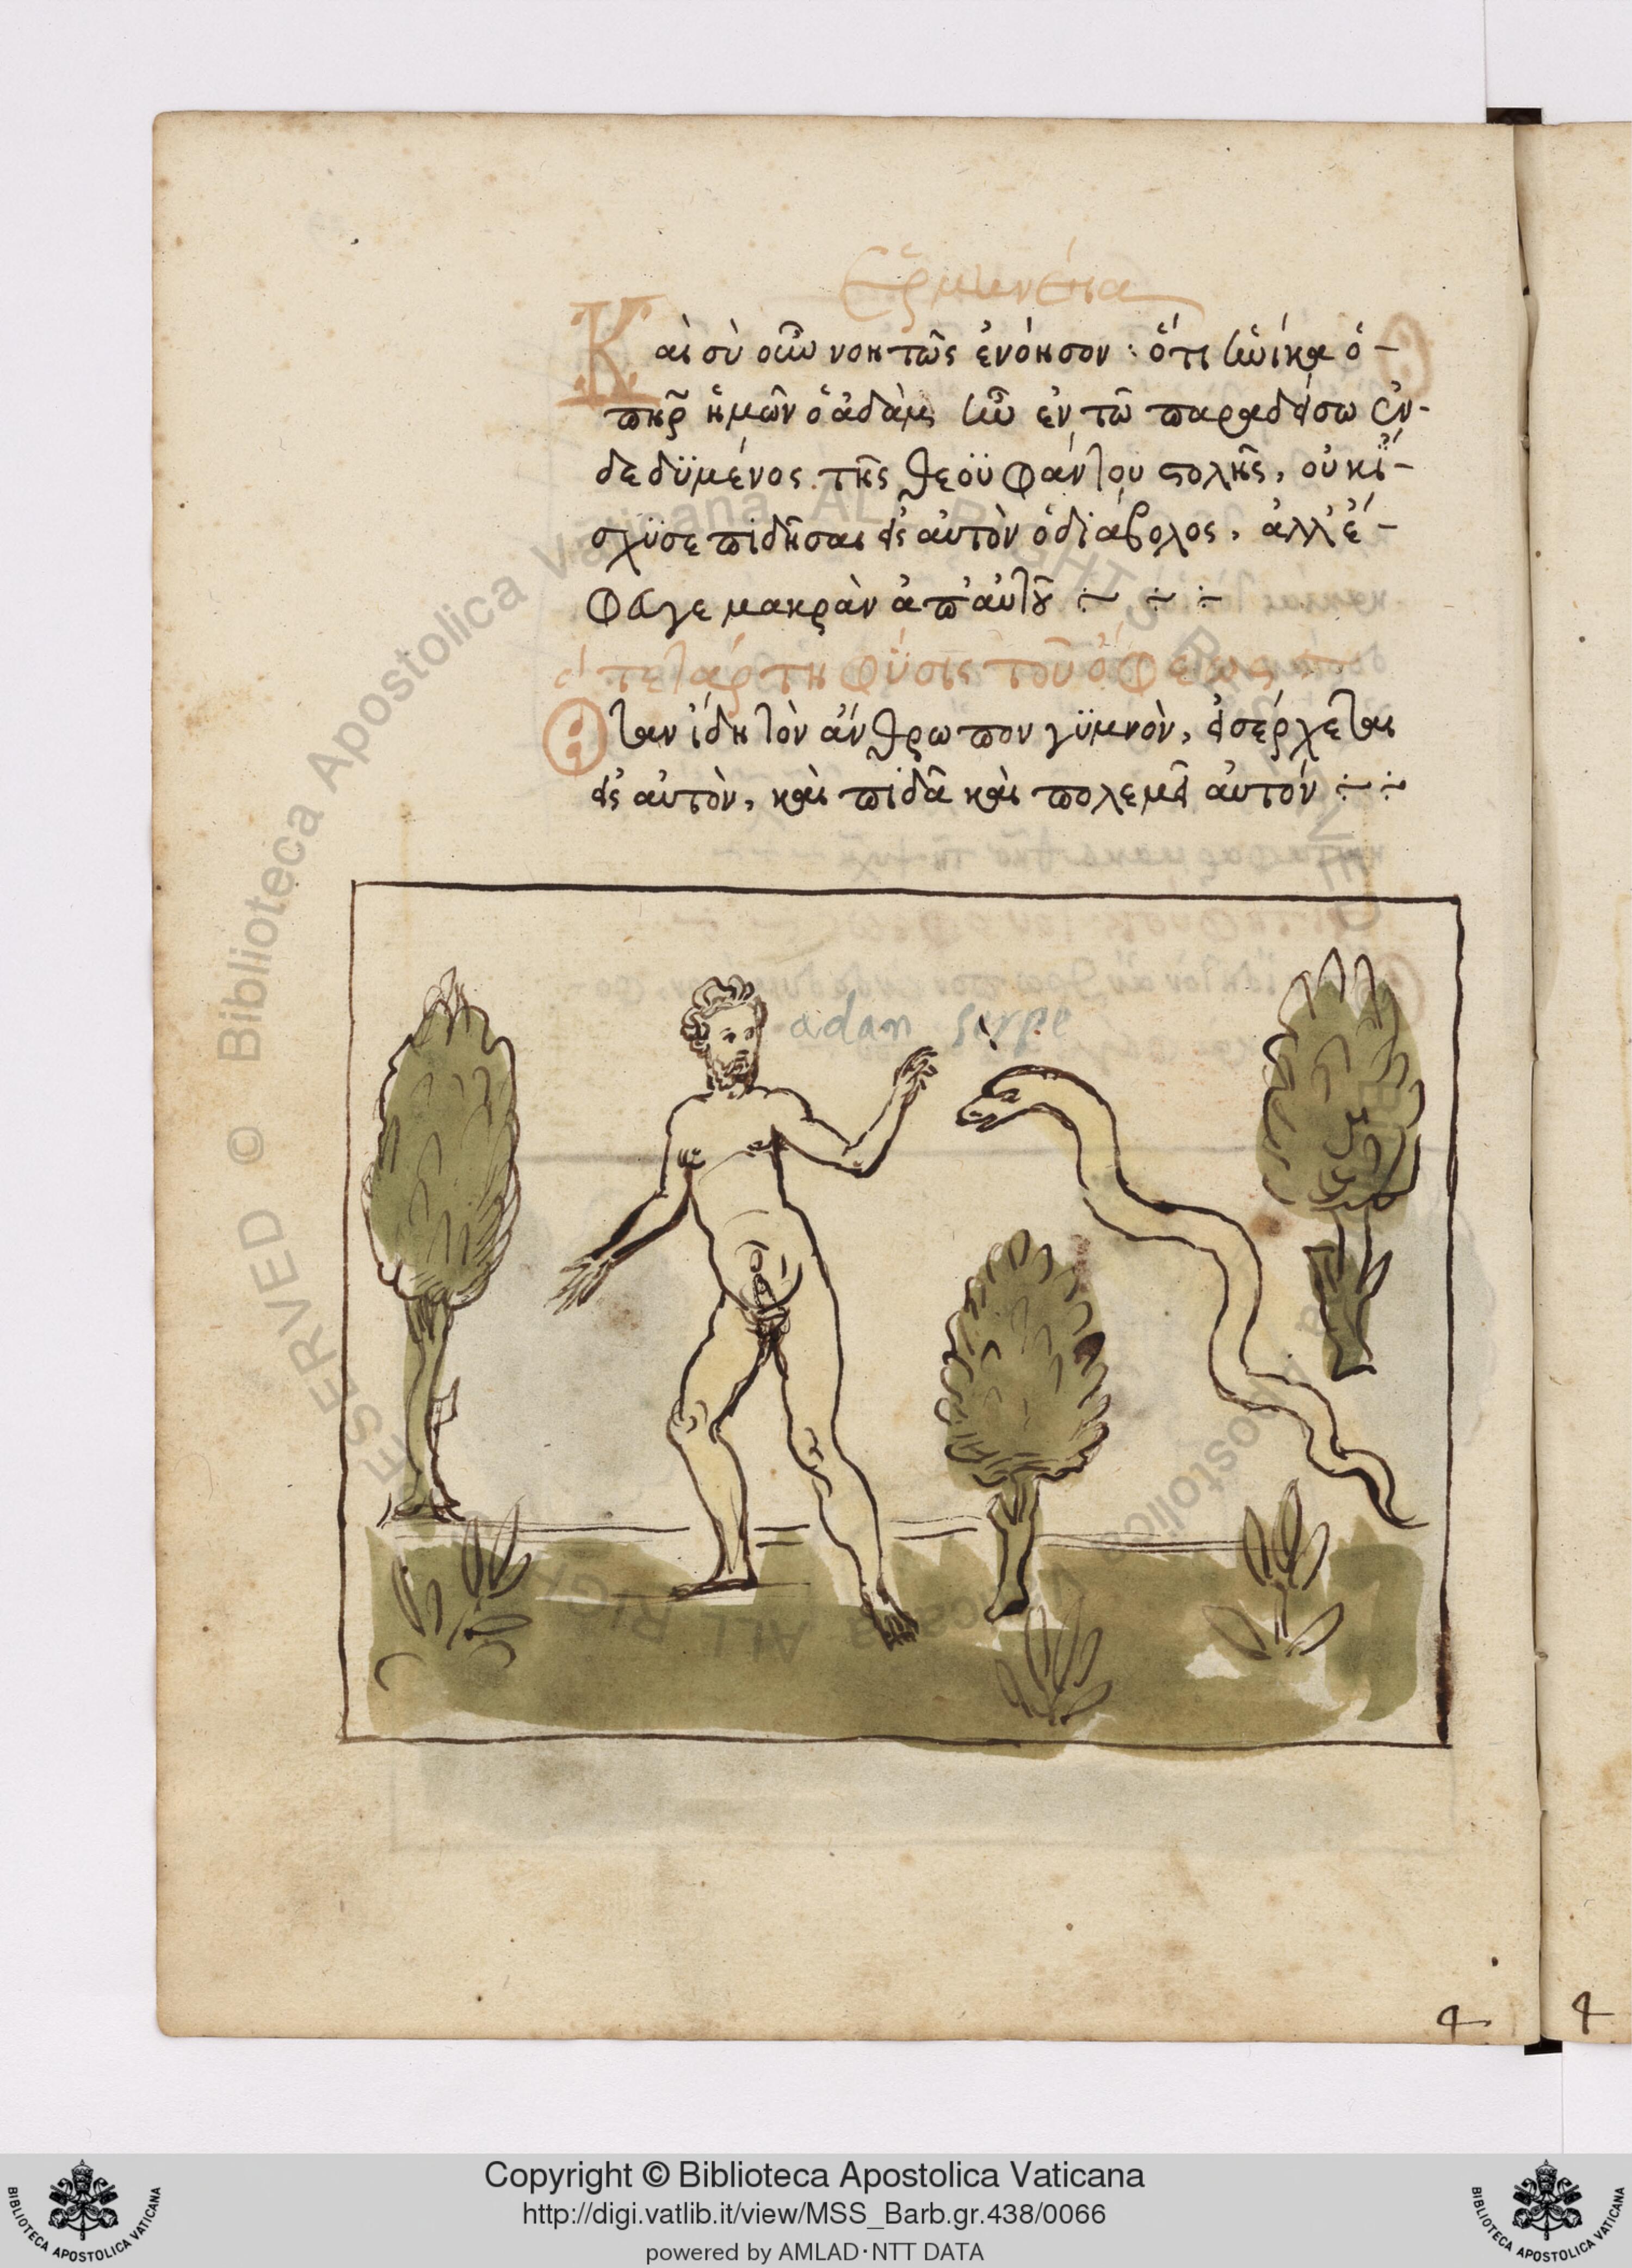 Ἑρμηνεία
Καὶ σὺ οὖν νοητῶς ἐνόησον : ὅτι ἡνίκα ὁ –
πηρ̃ ἡμῶν ὁ ἀδὰμ ἦν ἐν τῶ παραδείσω ἐν-
δεδϋμένος τῆς θεοϋφάντου στολῆς, οὐκ ἴ –
σχϋσε πιδῆσαι εἰς αὐτὸν ὁ διάβολος, ἀλλ' ἔ –
φϋγε μακρὰν ἀπ' αὐτοῦ ÷ ÷ ÷
ἡ τετάρτη φύσις τοῦ ὄφεως
Ὅταν ἴδη τὸν ἄνθρωπον γϋμνὸν, εἰσέρχεται
εἰς αὐτὸν, καὶ πιδᾶ καὶ πολεμεῖ αὐτόν ÷ ÷
adam serpe
4 4
Copyright © Biblioteca Apostolica Vaticana
http://digi.vatlib.it/view/MSS_Barb.gr.438/0066
powered by AMLAD·NTT DATA
BIBLIOTECA APOSTOLICA VATICANA
BIBLIOTECA APOSTOLICA VATICANA